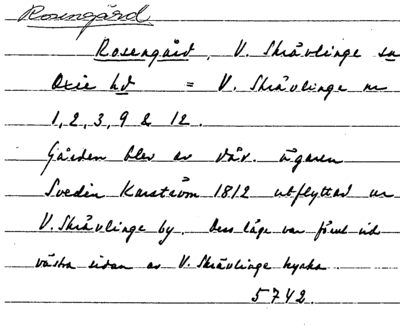 Rosengård
Rosengård, V. Skrävlinge sn
Oxie hd = V. Skrävlinge nr
1, 2, 3, 9 & 12.
Gården blev av dåv. ägaren
Svedin Karström 1812 utflyttad ur
V. Skrävlinge by. Dess läge var förut vid
västra sidan av V. Skrävlinge kyrka.
5742.